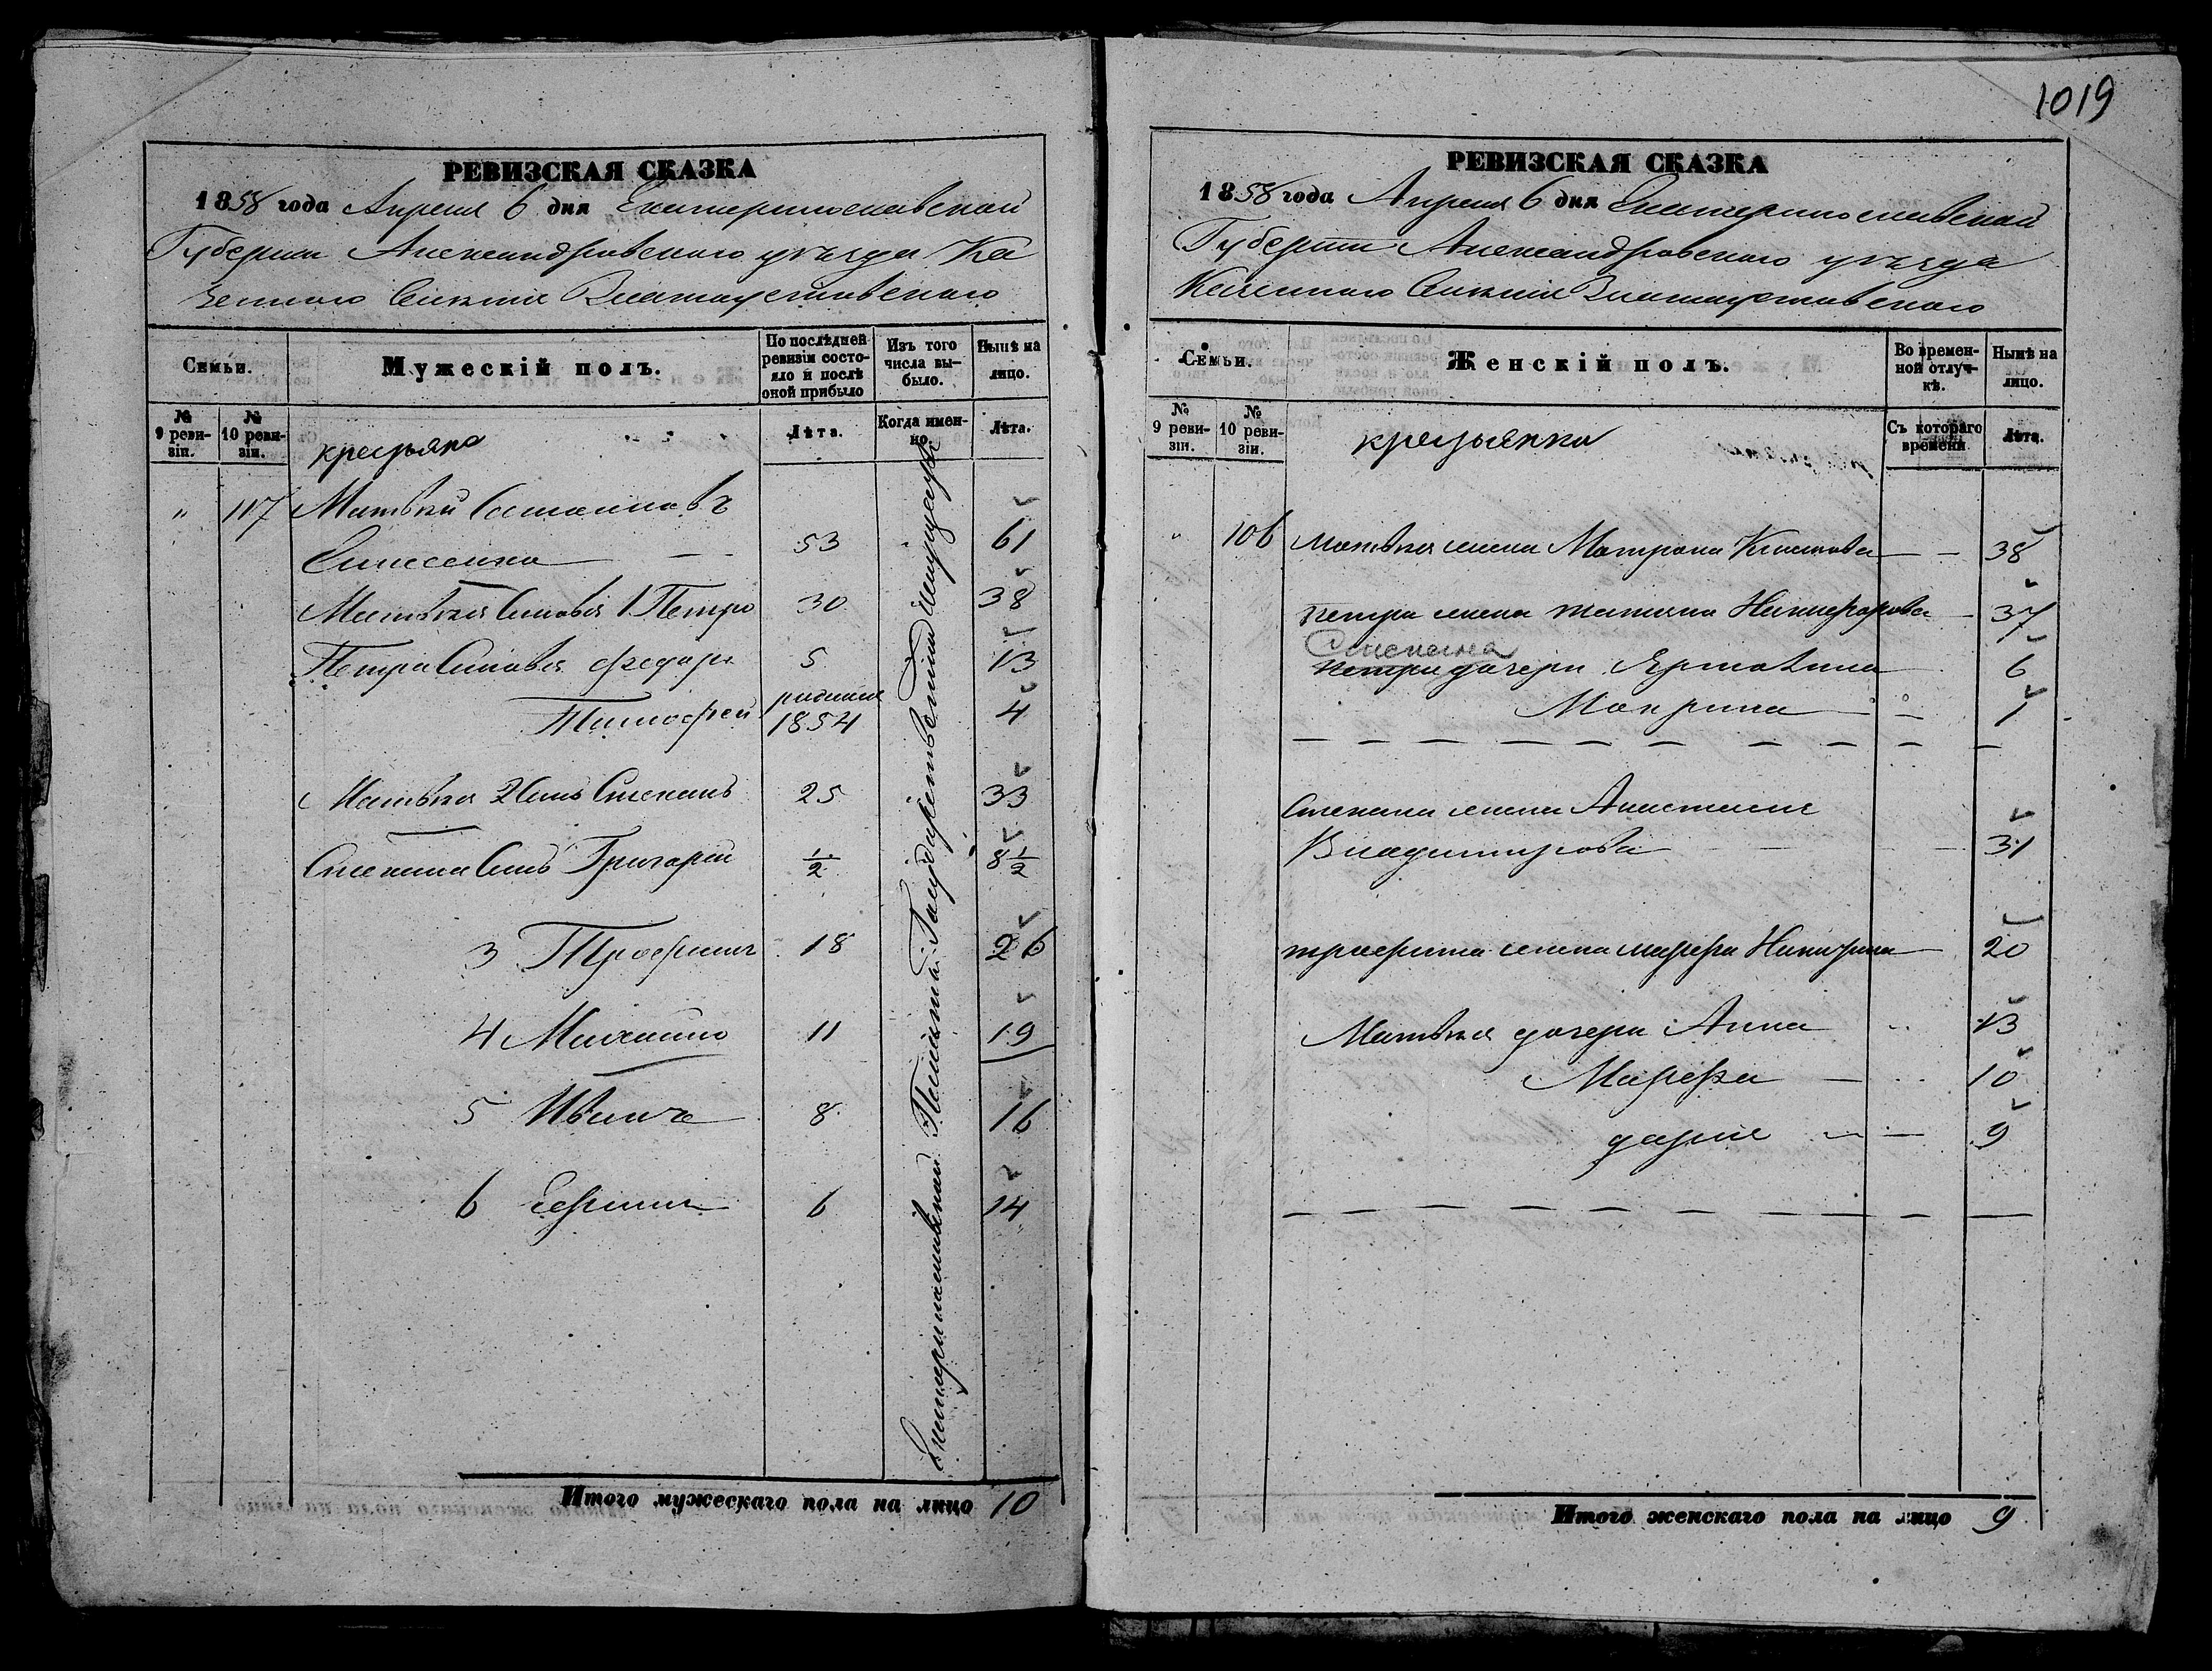 РЕВИЗСКАЯ СКАЗКА
1858 года Апреля 6 дня Екатеринославской
Губернии Александровского уъзда Ка
зенного Селенія Златоустовского
Семьи.
Мужескій полъ.
По послѣдней ревизіи состояло и послѣ оной прибыло
Изъ того числа выбыло.
Нынѣ на лицо.
№ 9 ревизіи.
№ 10 ревизіи.
крестьяне
Лѣта.
Когда именно.
Лѣта.
" 117 Матвѣй
53 61
Матвѣя Сыновья 1 Петро 30 38
Петра Сыновья Федоръ 5 13
Тимофей родился 1854 4
Матвѣя 2 Сынъ Степанъ 25 33
Степана Сынъ Григорій 1/2 8 1/2
3 Трофимъ 18 26
4 Михайло 11 19
5 Иванъ 8 16
6 Ефимъ 6 14
Екатеринославской Палаты Государственныхъ имуществъ
Итого мужескаго пола на лицо 10
1019
РЕВИЗСКАЯ СКАЗКА
1858 года Апреля 6 дня Екатеринославской
Губерніи Александровского уъзда
Казенного Селенія Златоустовского
Семьи.
Женскій полъ.
Во временной отлучкѣ.
Нынѣ на лицо.
№ 9 ревизіи.
№ 10 ревизіи.
крестьянки
Съ котораго времени
Лѣта.
" 106 Матвѣя жена Матрона 38
Петра жена Татіяна Никифорова 37
Степана
Петра дочери 6
Макрина 1
Степана жена Анастасия
Владимирова 31
Трофима жена Марфа 20
Матвѣя дочери Анна 13
Марфа 10
дарья 9
Итого женскаго пола на лицо 9